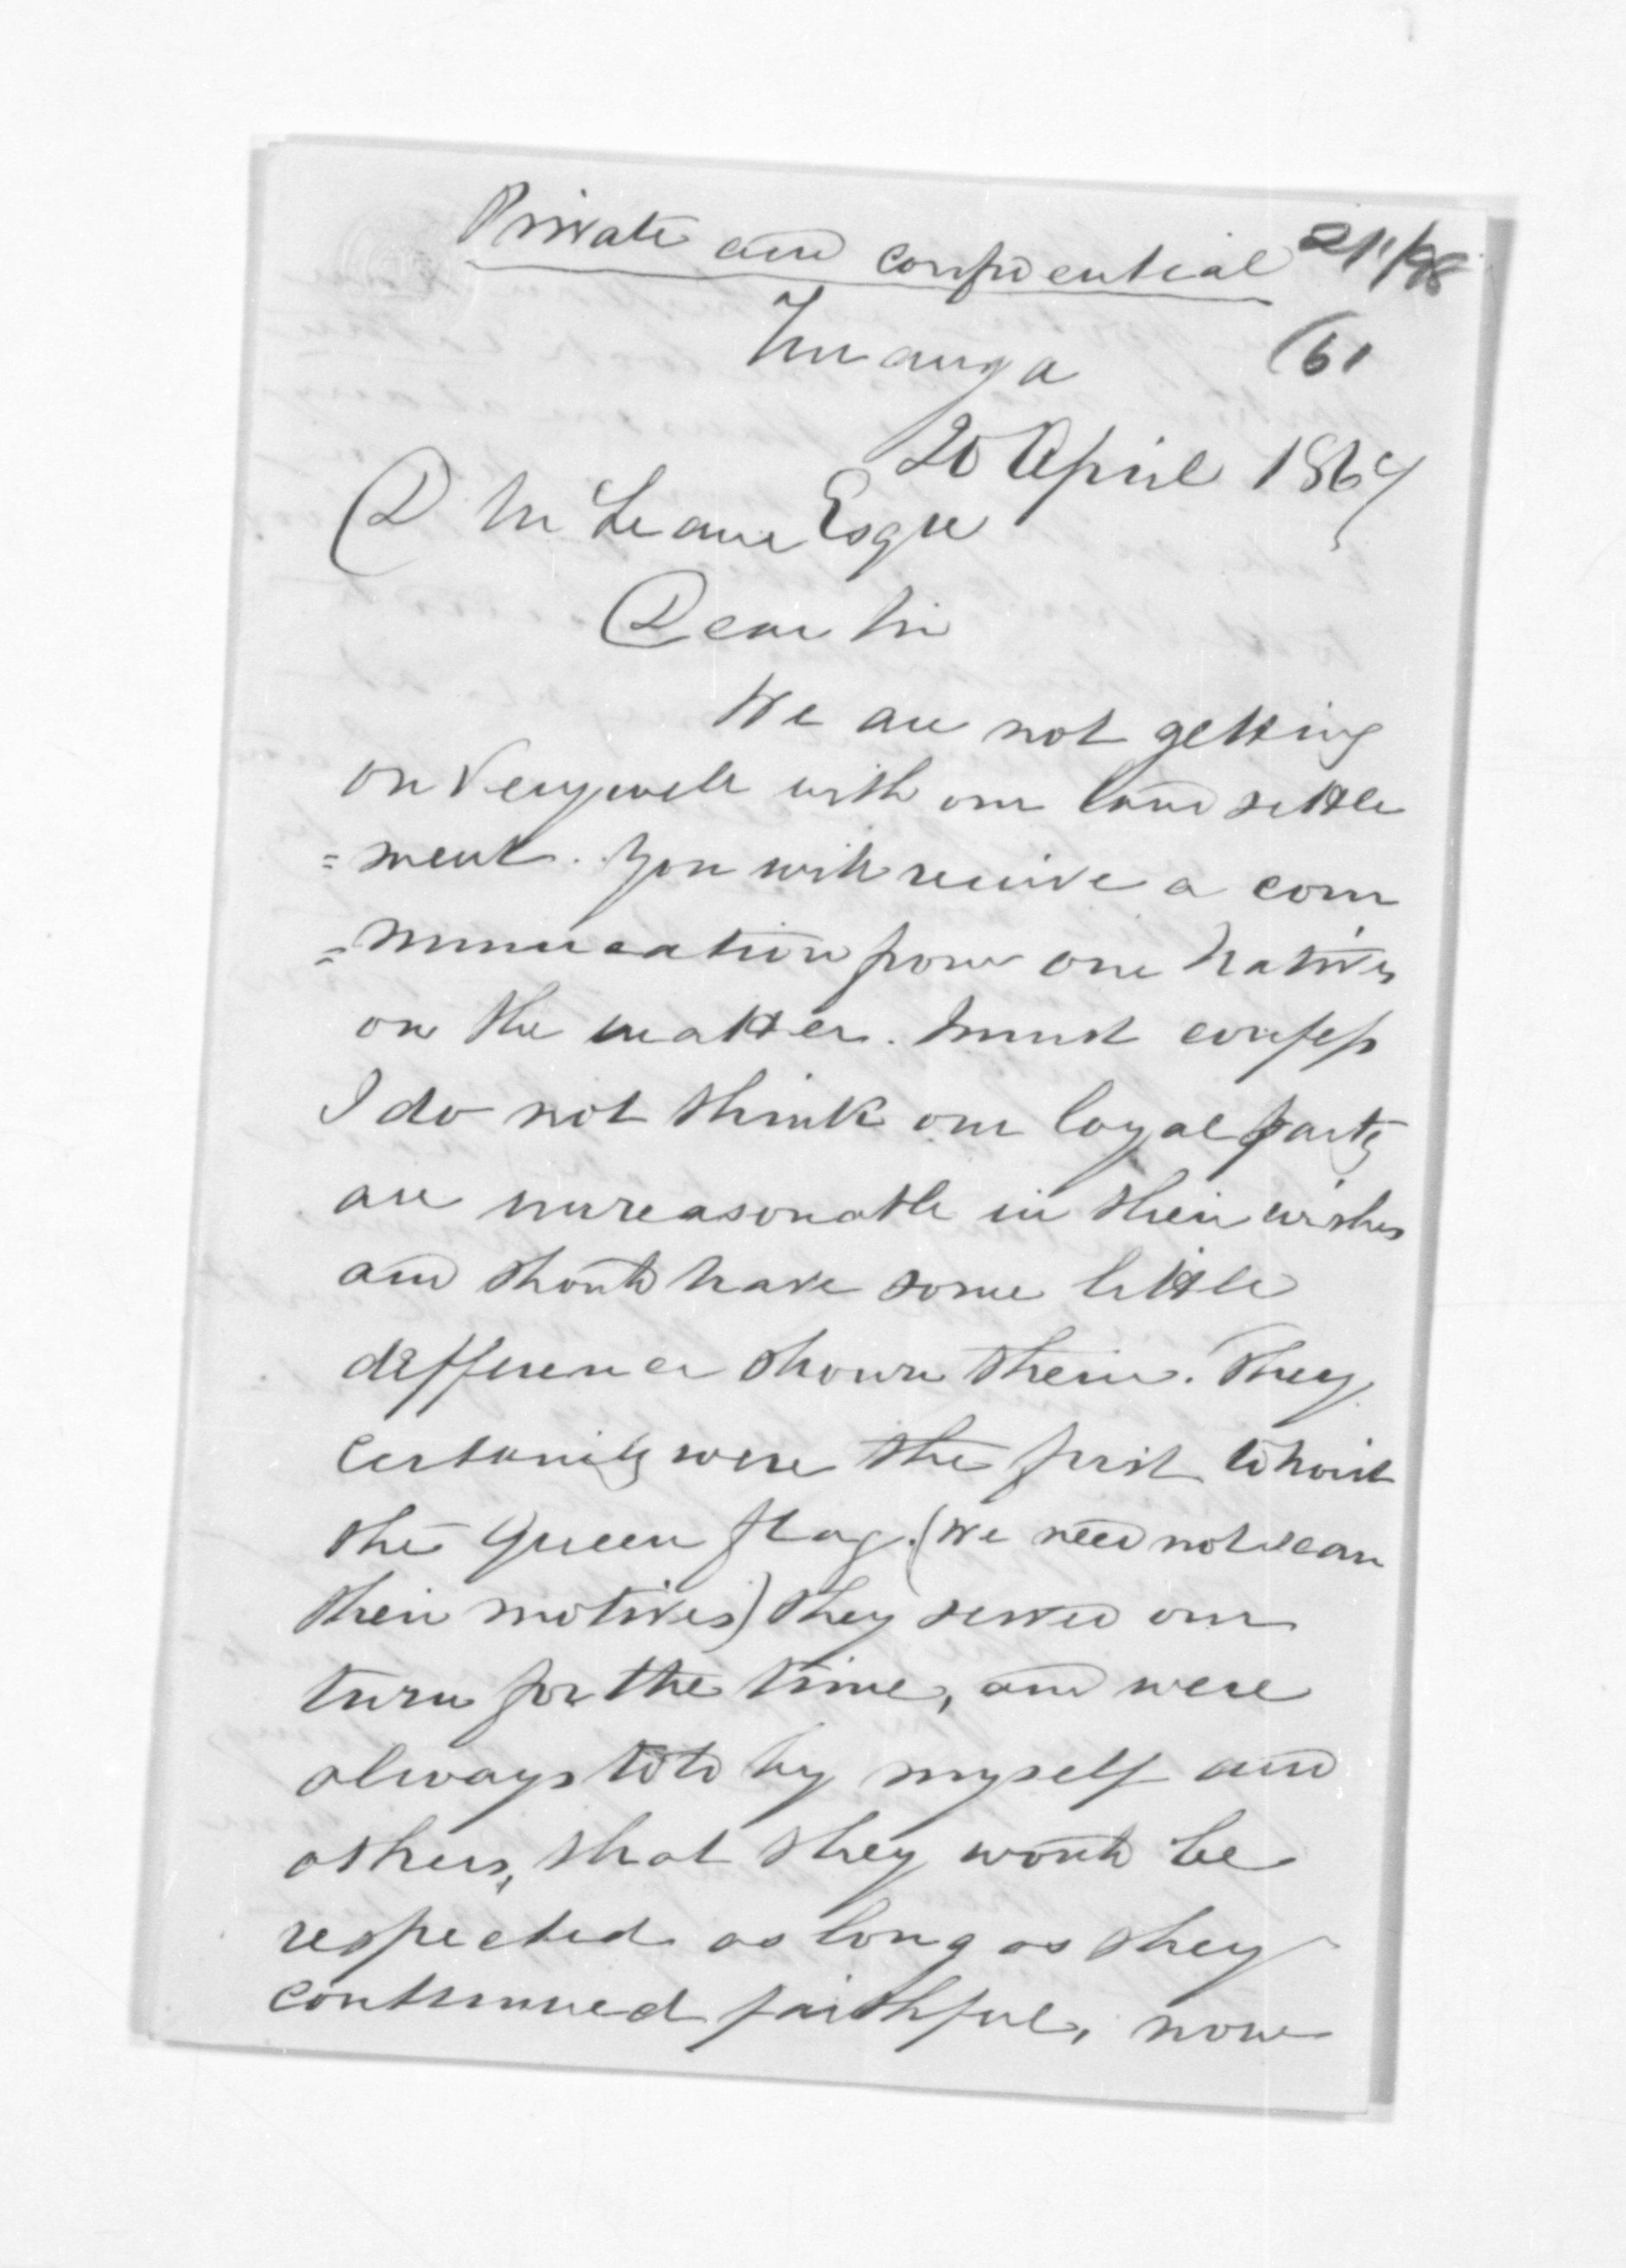 Private and confidential
Turanga
61
20 April 1867
D McLean Esqre
Dear Sir
We are not getting
on very well with our land settle
=ment. You will receive a com
=munication from our natives
on the matter. I must confess
I do not think our loyal party
are unreasonable in their wishes
and should have some little
difference shown them. They
certainly were the first to hoist
the Queen flag. (We need not scan
their motives) they served our
turn for the time, and were
always told by myself and
others, that they would be
respected as long as they
continued faithful, now